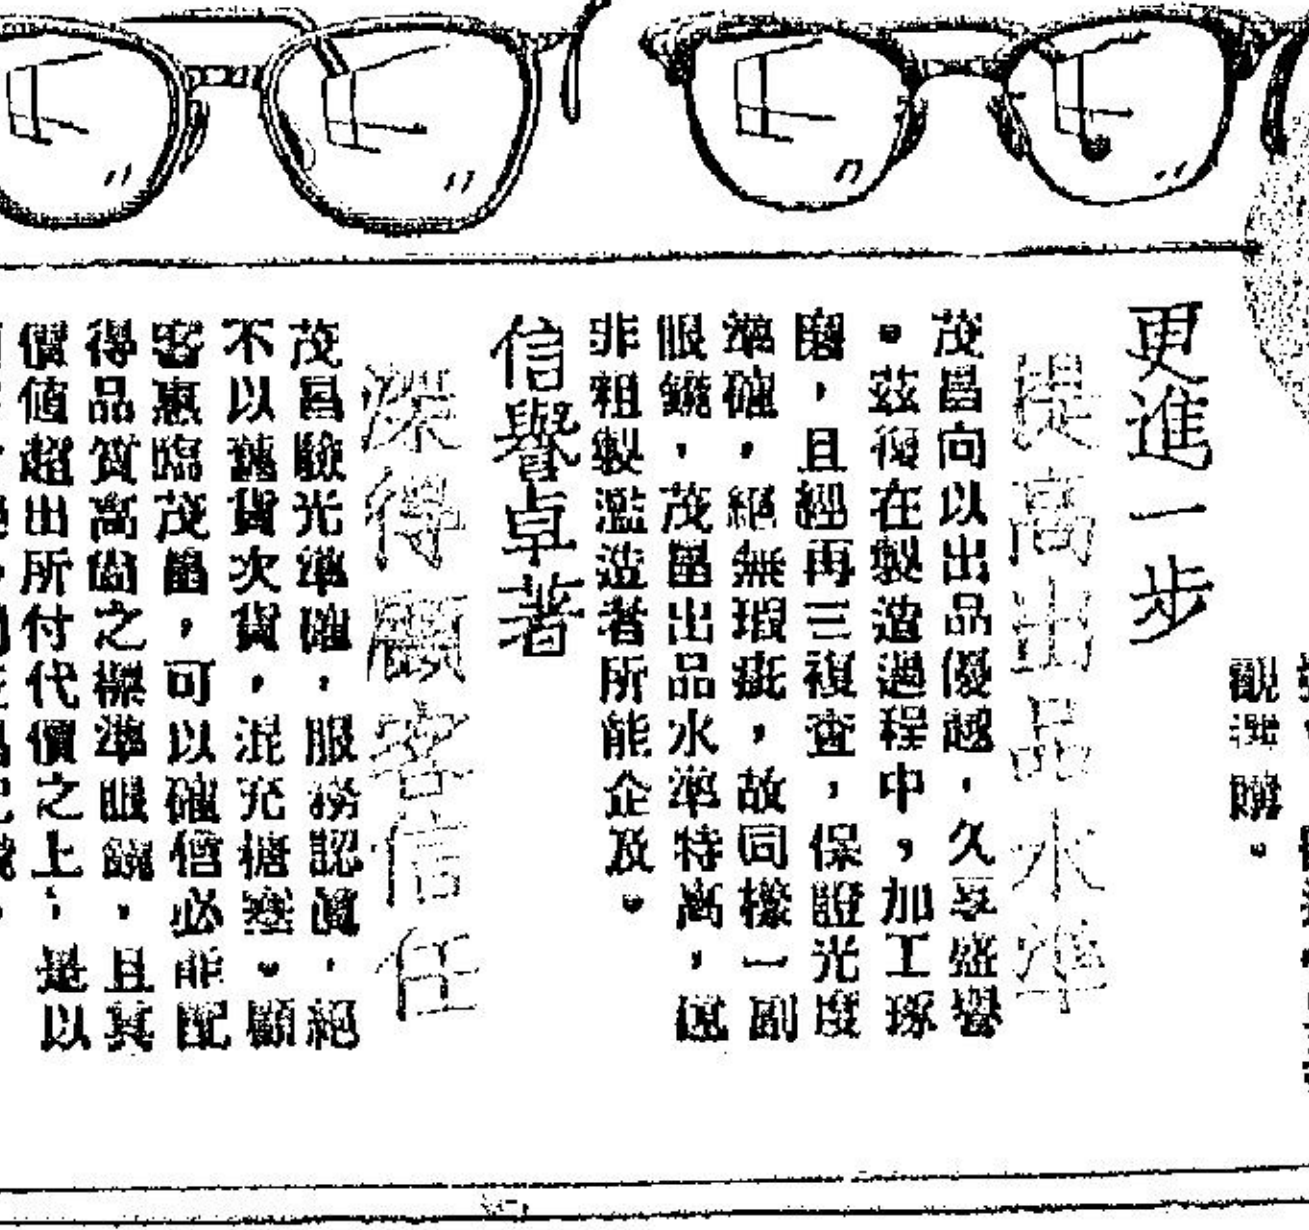 觀選購。
更進一步
提高出品水準
茂昌向以出品優越，久享盛譽
。茲復在製造過程中，加工琢
磨，且經再三複查，保證光度
準確，絕無瑕疵，故同樣一副
眼鏡，茂昌出品水準特高，遠
非粗製濫造者所能企及。
信譽卓著
深得顧客信任
茂昌驗光準確，服務認真，絕
不以舊貨次貨，混充搪塞。顧
客惠臨茂昌，可以確信必能配
得品質高尚之標準眼鏡，且其
價值超出所付代價之上，是以